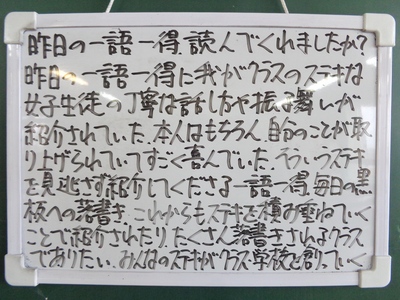 昨日の一語一得、読んでくれましたか?
昨日の一語一得に我がクラスのステキな
女子生徒の丁寧な話し方や振る舞いが
紹介されていた。本人はもちろん、自分のことが取
り上げられていてすごく喜んでいた。そういうステキ
を見逃さず紹介してくださる一語一得、毎日の黒
板への落書き、これからもステキを積み重ねていく
ことで紹介されたり、たくさん落書きされるクラス
でありたい。みんなのステキがクラス、学校を創っていく